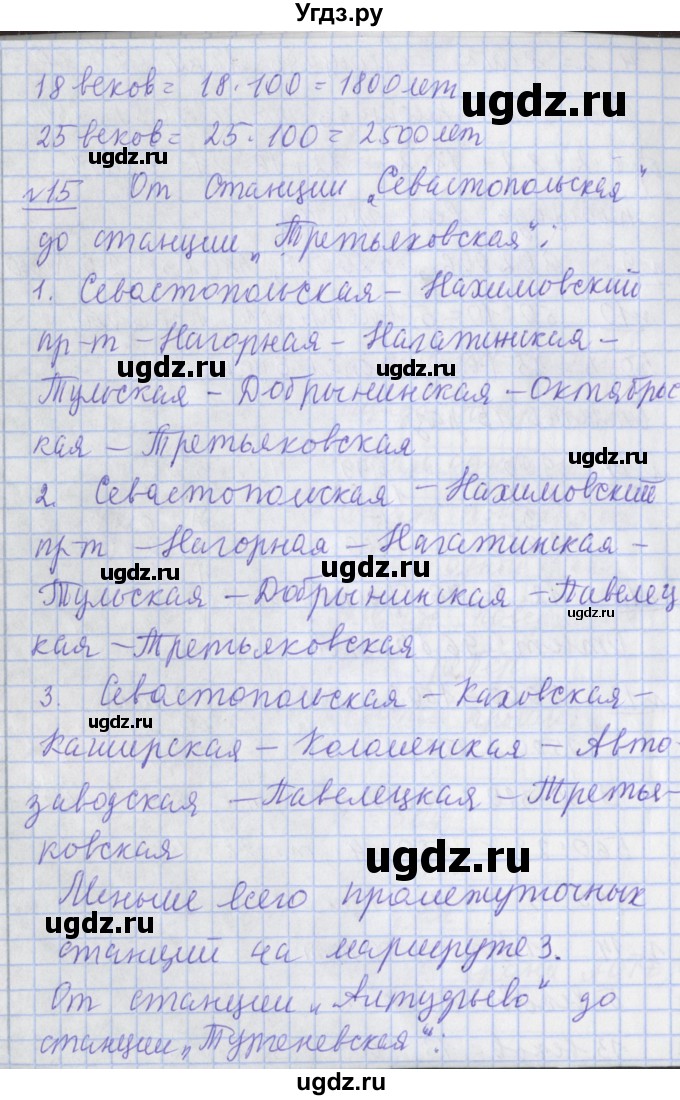 Угдз.ру
18 веков = 18·100 = 1800 лет
ugdz.ru
25 веков = 25·100 = 2500 лет
ugdz.ru
№15 От станции „Севастопольская“
до станции „Третьяковская“:
ugdz.ru
1. Севастопольская – Нахимовский
пр-т – Нагорная – Нагатинская –
ugdz.ru
ugdz.ru
Тульская – Добрынинская – Октябрьс
кая – Третьяковская
ugdz.ru
2. Севастопольская – Нахимовский
пр-т – Нагорная – Нагатинская –
ugdz.ru
ugdz.ru
Тульская – Добрынинская – Павелец
ugdz.ru
кая – Третьяковская
3. Севастопольская – Каховская –
ugdz.ru
Каширская – Коломенская – Авто-
заводская – Павелецкая – Третья-
ugdz.ru
ковская
ugdz.ru
Меньше всего промежуточных
ugdz.ru
станций на маршруте 3.
От станции „Алтудьево“ до
станции „Тургеневская“:
ugdz.ru
ugdz.ru